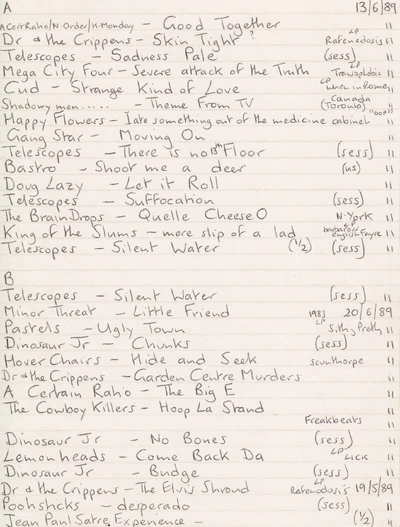 A 13/6/89
A Cert Ratio/N.Order/H.Monday - Good Together "
Dr & the Crippens - Skin Tight? LP Rafenodosis "
Telescopes - Sadness Pale (sess) "
Mega City Four - Severe attack of the Truth LP Tranzophobia "
Cud - Strange Kind of Love LP When in Rome "
Shadowy men...... - Theme From TV Canada (Toronto) "
Happy Flowers - I ate something out of the medicine cabinet "
Gang Star - Moving On "
Telescopes - There is no 13th Floor (sess) "
Bastro - Shoot me a deer (US) "
Doug Lazy - Let it Roll "
Telescopes - Suffocation (sess) "
The Brain Drops - Quelle Cheese O N.York "
King of the Slums - mere slip of a lad LP barbarous english fayre "
Telescopes - Silent Water (1/2) (sess) "
B
Telescopes - Silent Water (sess) "
Minor Threat - Little Friend 1983 20/6/89
Pastels - Ugly Town LP Sittin Pretty "
Dinosaur Jr - Chunks (sess) "
Hover Chairs - Hide and Seek scunthorpe "
Dr & the Crippens - Garden Centre Murders "
A Certain Ratio - The Big E "
The Cowboy Killers - Hoop La Stand "
Freakbeats "
Dinosaur Jr - No Bones (sess) "
Lemonheads - Come Back Da LP Lick "
Dinosaur Jr - Budge (sess) "
Dr & the Crippens - The Elvis Shroud LP Rafenodosis 19/5/89
Pooh sticks - desperado (sess) "
Jean Paul Satre Experience - (1/2) "